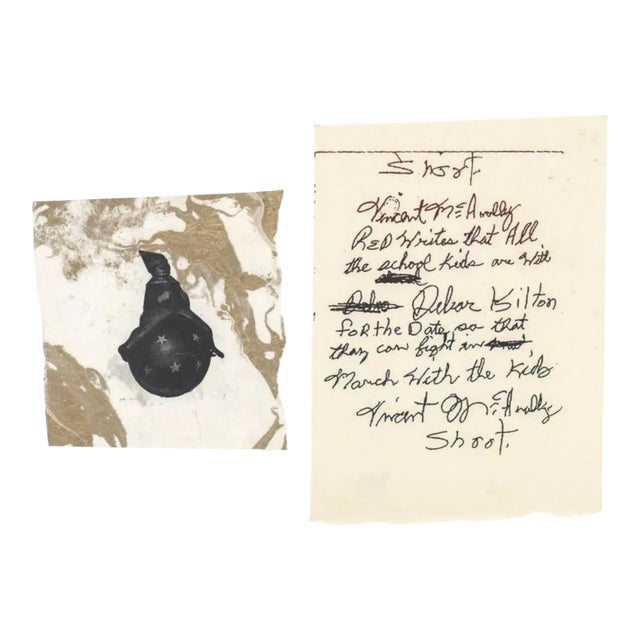 Shoot.
Vincent McAnally
RED Writes that All
the school Kids are With
Dekar Kilton
FOR the Date, so that
thay can fight in
March With the Kids
Vincent McAnally
Shoot.